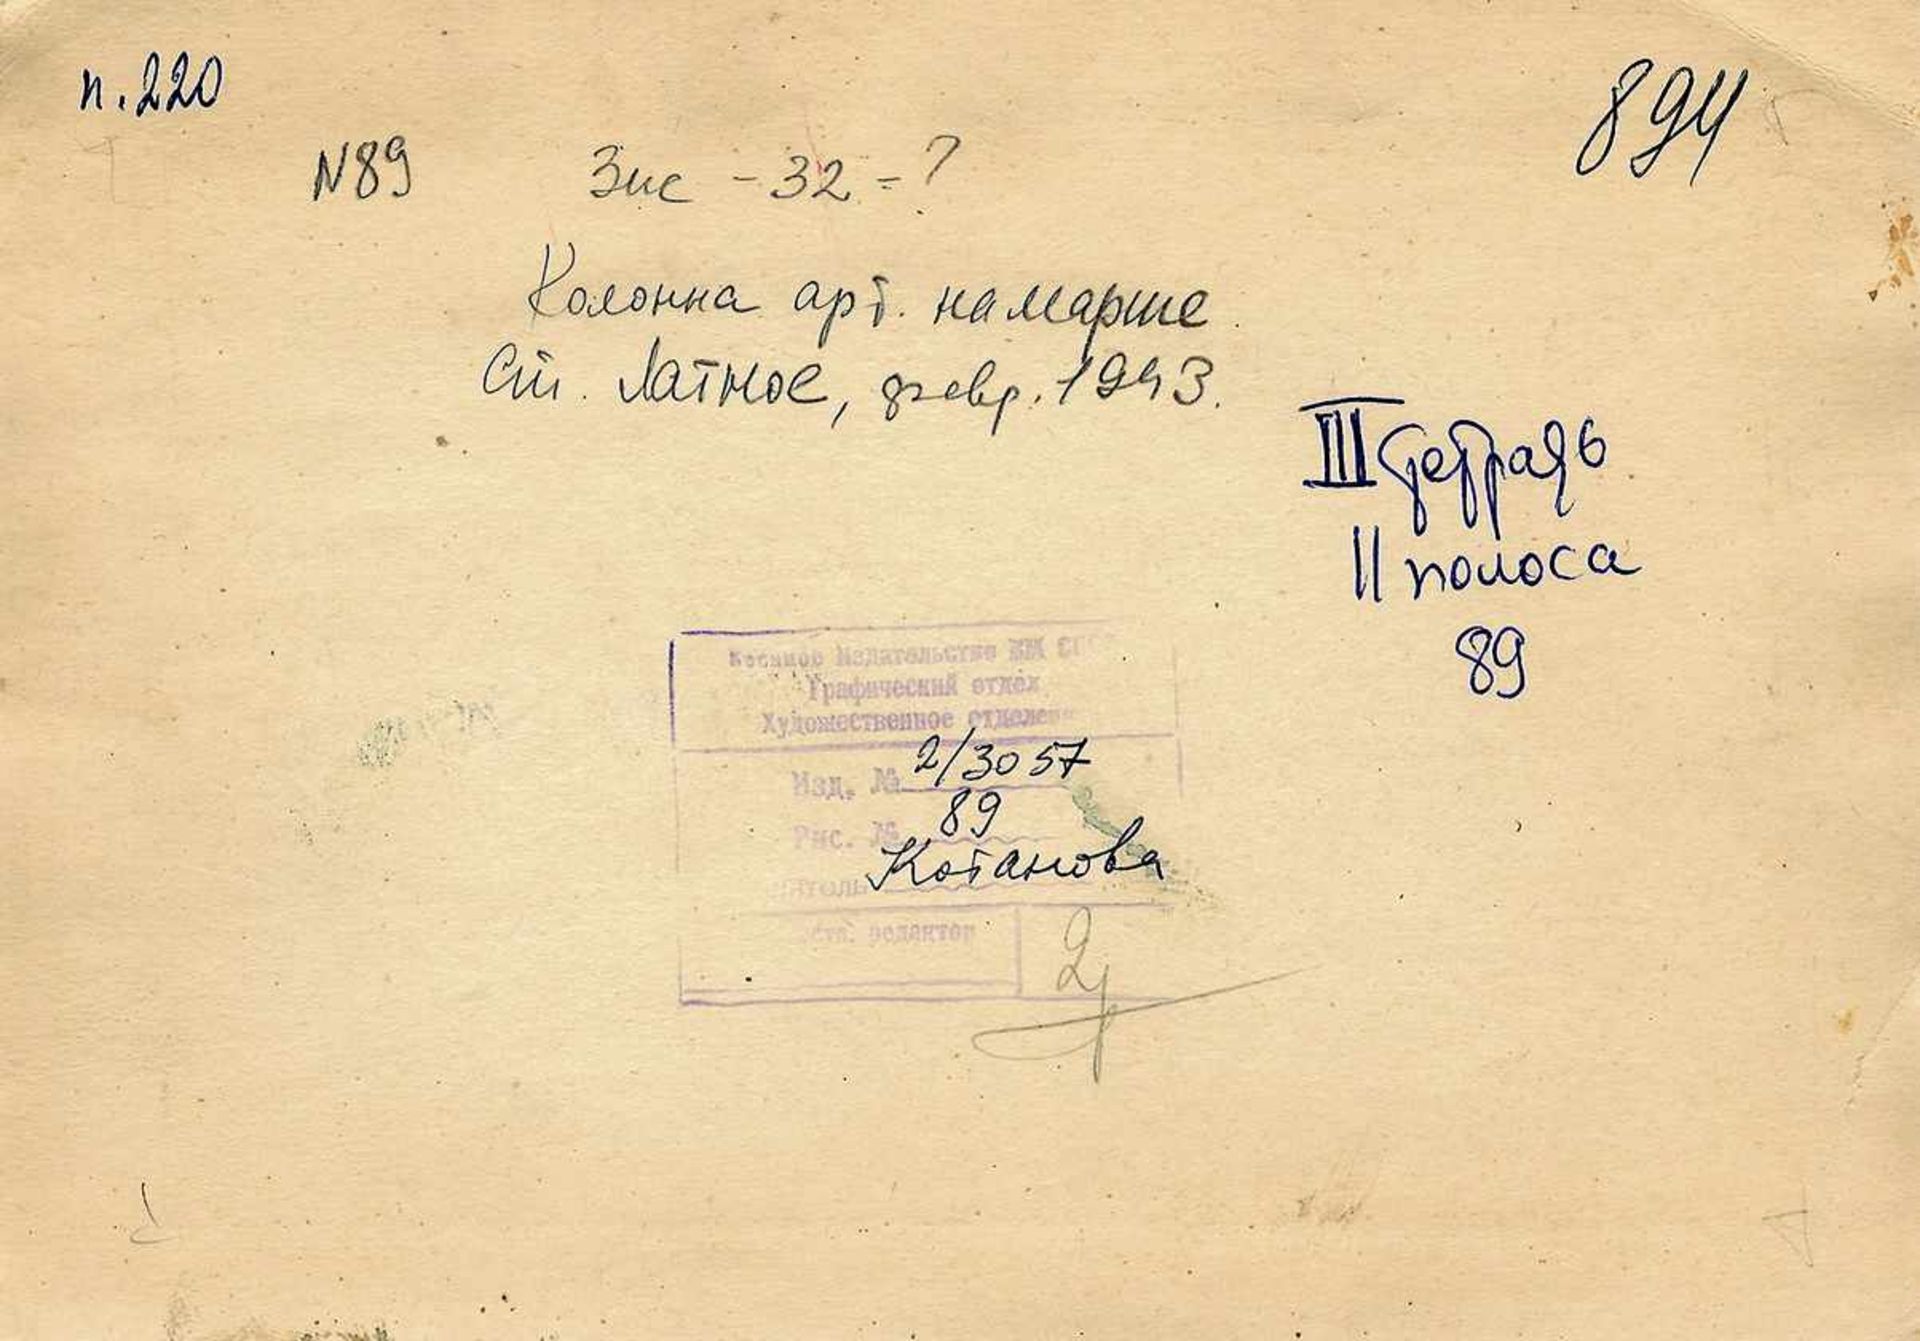 п. 220
894
N89 Зис - 32 = ?
Колонна арт. на марше.
Ст. Латное, февр. 1943.
III тетрадь
II полоса
89
Военное Издательство ВМ СССР
Графический отдел
Художественное отделен
Изд. № 2/3057
Рис. № 89
Котанова
редактор